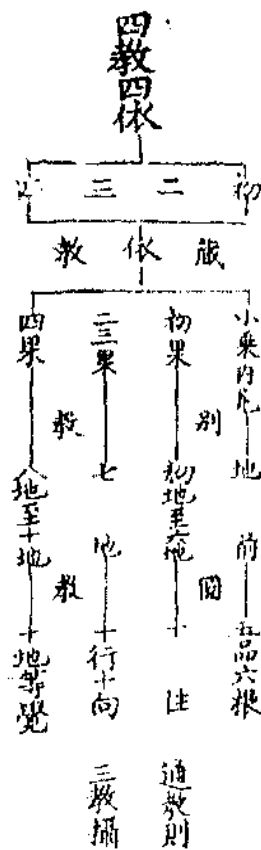 四教四依
初 二 三 四
藏 依 教
小乘內凡 地前 五品六根
別 圓
初果 初地至六地 十住 通教則
二三果 七地 十行十向 三教攝
教 教
四果 八地至十地 十地等覺